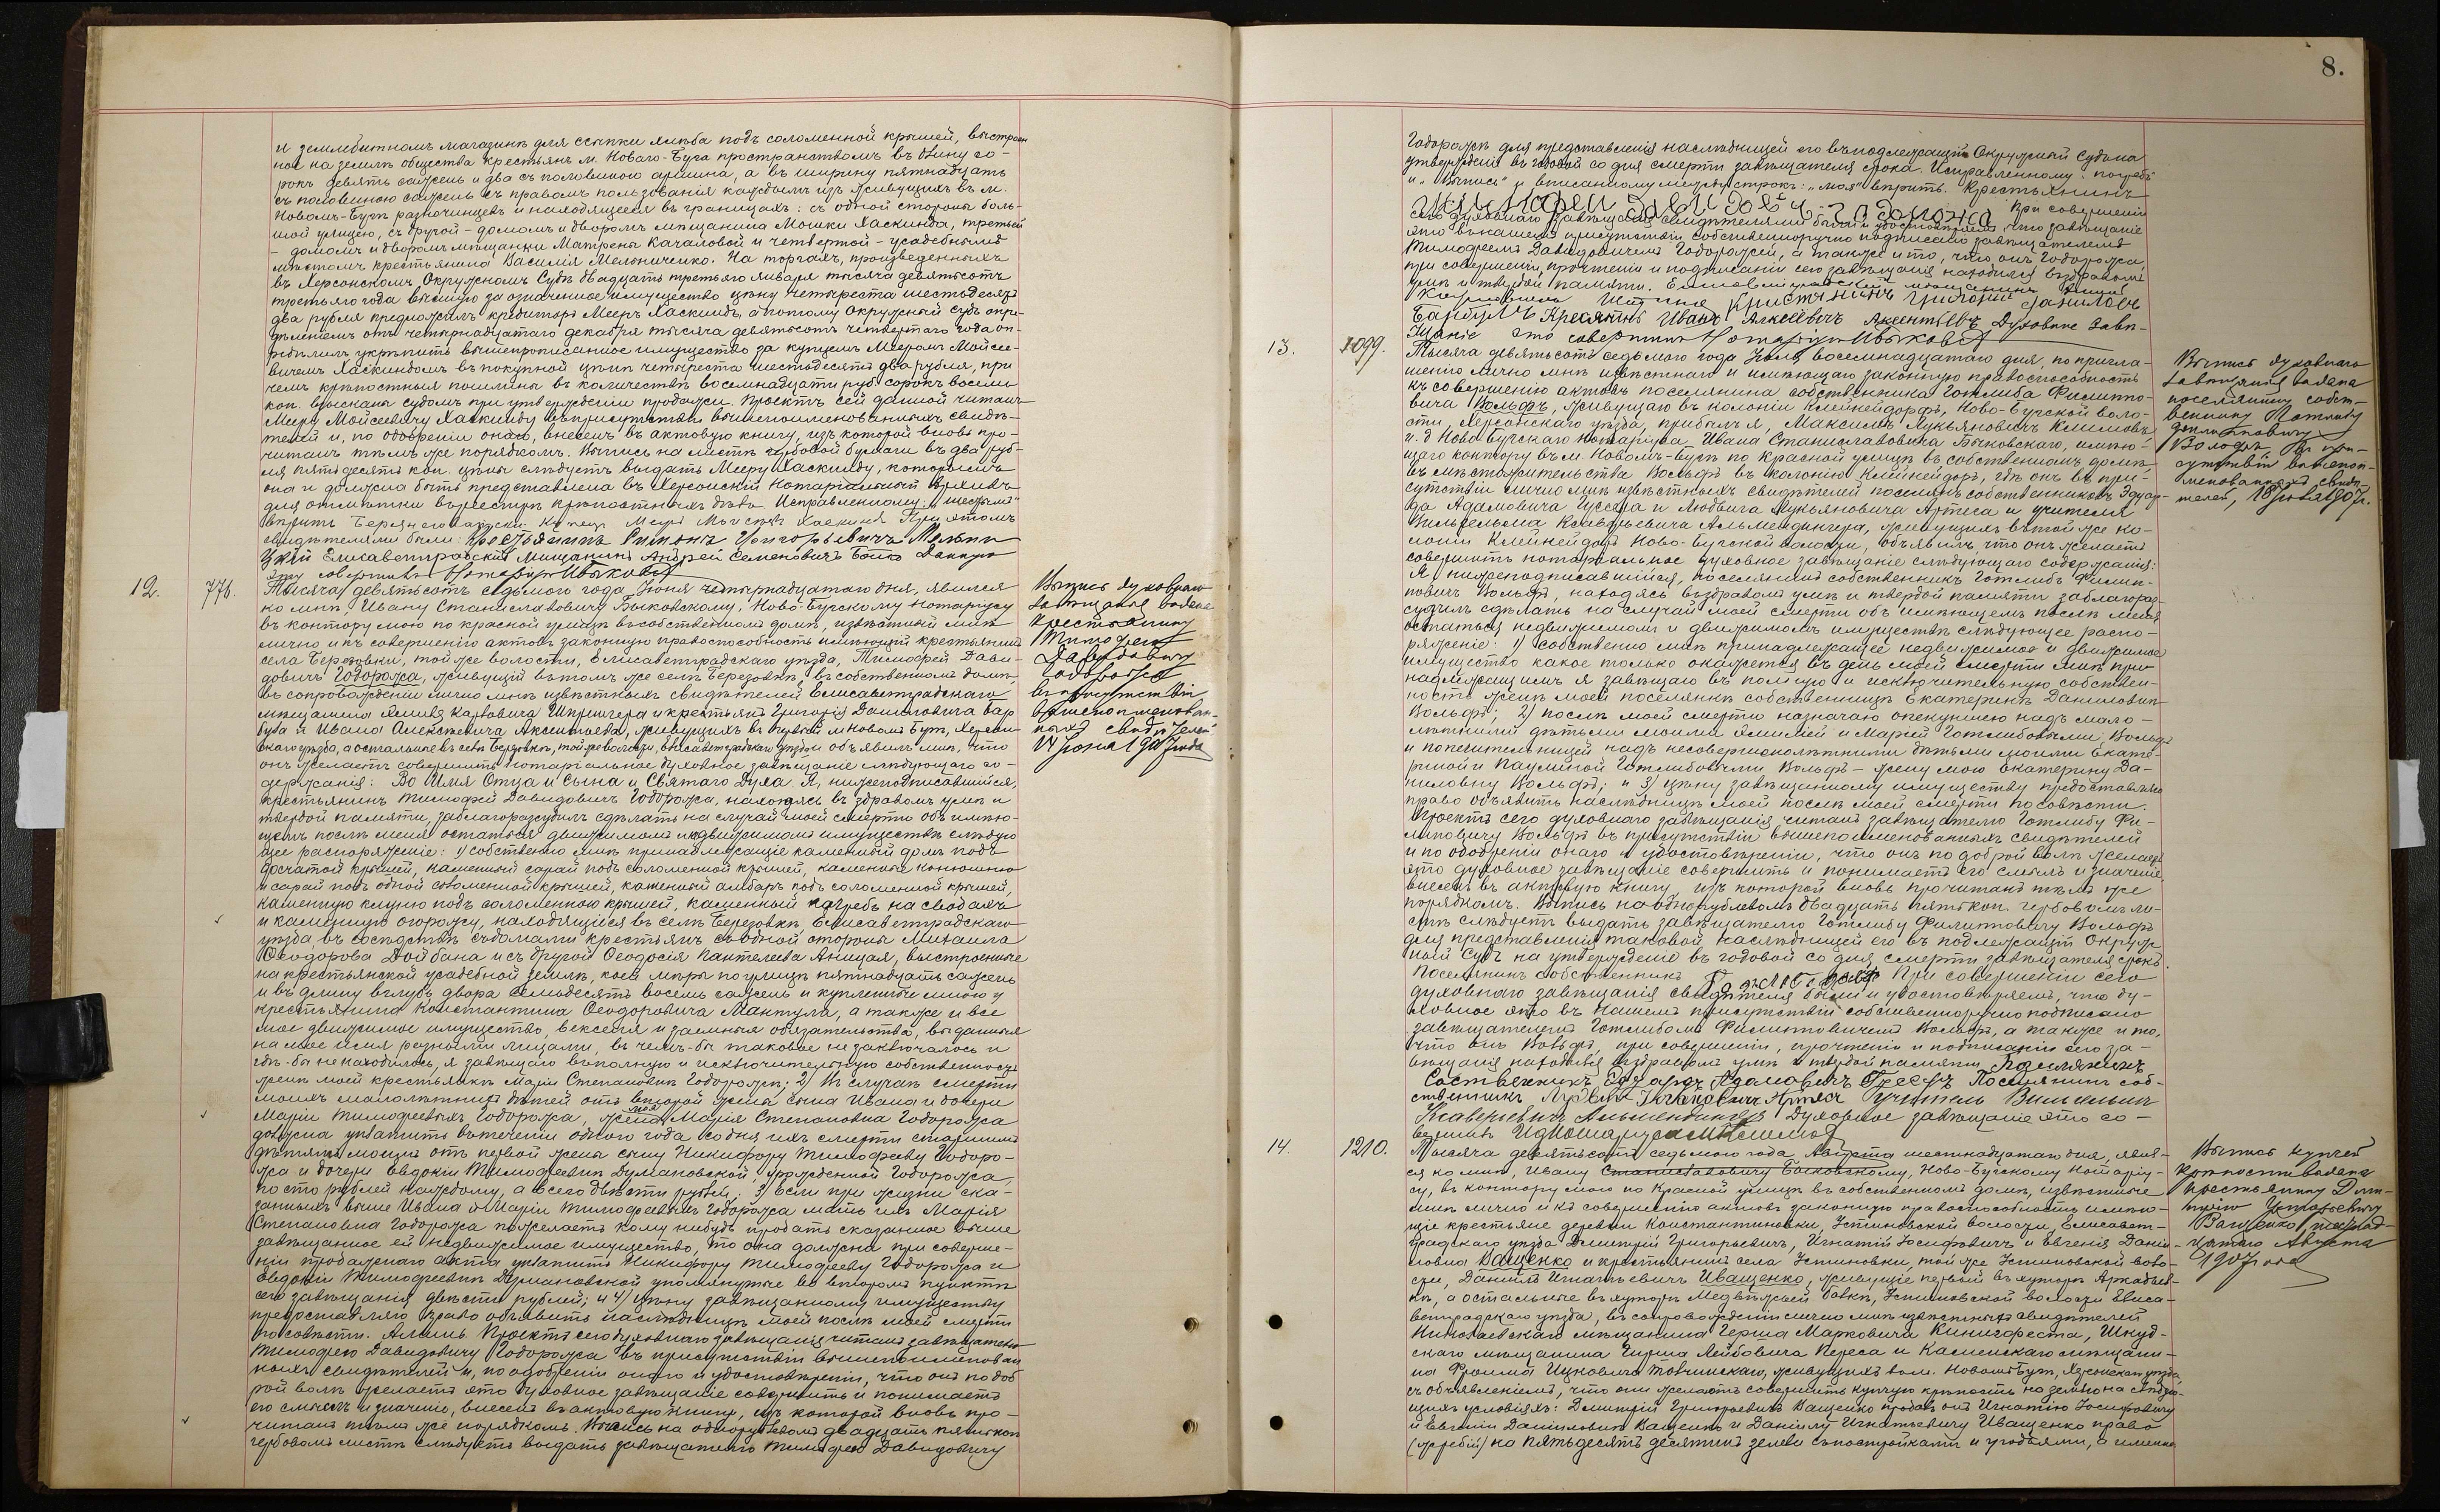 8.
и землебитномъ магазинѣ для ссыпки хлѣба подъ соломенной крышей, выстроен
ное на землѣ общества крестьянъ м. Новаго-Буга пространствомъ въ длину со-
рокъ девять сажень и два съ половиною аршина, а въ ширину пятнадцать
съ половиною сажень съ правомъ пользованія каждымъ изъ живущихъ въ м.
Новомъ-Бугѣ разночинцевъ и находящееся въ границахъ: съ одной стороны боль-
шой улицею, съ другой - домомъ и дворомъ мѣщанина Мошки Хаскинда, третьей
- домомъ и дворомъ мѣщанки Матрены Качаловой и четвертой - усадебнымъ
мѣстомъ крестьянина Василія Мельниченко. На торгахъ, произведенныхъ
въ Херсонскомъ Окружномъ Судѣ двадцать третьяго Января тысяча девятьсотъ
третьяго года высшую за означенное имущество цѣну четыреста шестьдесятъ
два рубля предложилъ кредиторъ Мееръ Хаскиндъ, а потому Окружный Судъ опре-
дѣленіемъ отъ четырнадцатаго декабря тысяча девятьсотъ четвертаго года оп-
редѣлилъ укрѣпить вышепрописанное имущество за купцемъ Мееромъ Мойсее-
вичемъ Хаскиндомъ въ покупной цѣнѣ четыреста шестьдесятъ два рубля, при
чемъ крѣпостныя пошлины въ количествѣ восемнадцати руб. сорокъ восемь
коп. взысканы судомъ при утвержденіи продажи. Проектъ сей данной читанъ
Мееру Мойсеевичу Хаскинду въ присутствіи вышепоименованныхъ свидѣ-
телей и, по одобреніи онаго, внесенъ въ актовую книгу, изъ которой вновь про-
читанъ тѣмъ же порядкомъ. Выпись на листѣ гербовой бумаги въ два руб-
ля пятьдесятъ коп. цѣны слѣдуетъ выдать Мееру Хаскинду, которымъ
она и должна быть представлена въ Херсонскій Нотаріальный Архивъ
для отмѣтки въ реестрѣ крѣпостныхъ дѣлъ. Исправленному:
вѣрить. Купец При этомъ
свидѣтелями были: Крестьянинъ Григорьевичъ
Елисаветградскій мещанинъ Андрей Семеновичъ Данную
эту совершилъ Нотаріусъ ИБыковскій
12. 776. Тысяча девятьсотъ седьмого года, Іюня четырнадцатаго дня, явился
ко мнѣ, Ивану Станиславовичу Быковскому, Ново-Бугскому Нотаріусу
въ контору мою по красной улицѣ въ собственномъ домѣ, извѣстный мнѣ
лично и къ совершенію актовъ законную правоспособность имѣющій крестьянинъ
села Березовки, той же волости, Елисаветградскаго уѣзда, Тимофей Дави-
довичъ Годорожа, живущій въ томъ же селѣ Березовкѣ, въ собственномъ домѣ,
въ сопровожденіи лично мнѣ извѣстныхъ свидѣтелей Елисаветградскаго
мѣщанина Карловича Шпрингера и крестьянъ Григорія Даниловича Бар
була и Ивана Алексѣевича Аксентьева, живущихъ первый въ м. Новомъ Бугѣ, Херсон
скаго уѣзда, а остальные въ селѣ Березовкѣ, той же волости, Елисаветградскаго уѣзда и объявилъ мнѣ, что
онъ желаетъ совершить нотаріальное духовное завѣщаніе слѣдующаго со-
держанія: Во Имя Отца и Сына и Святаго Духа. Я, нижеподписавшійся,
крестьянинъ Тимофей Давидовичъ Годорожа, находясь въ здравомъ умѣ и
твердой памяти, заблагоразсудилъ сдѣлать на случай моей смерти объ имѣю-
щемъ послѣ меня остаться движимомъ и недвижимомъ имуществѣ слѣдую
щее распоряженіе: 1) собственно мнѣ принадлежащіе каменный домъ подъ
досчатой крышей, каменный сарай подъ соломенной крышей, каменные конюшню
и сарай подъ одной соломенной крышей, каменный амбаръ подъ соломенной крышей,
каменную клуню подъ соломенною крышей, каменный погребъ на сводахъ
и каменную огорожу, находящіеся въ селѣ Березовкѣ, Елисаветградскаго
уѣзда, въ сосѣдствѣ съ домами крестьянъ съ одной стороны Михаила
Ѳеодорова Дойбана и съ другой Ѳеодосія Пантелеева Аницая, выстроенные
на крестьянской усадебной землѣ, коей мѣры по улицѣ пятнадцать сажень
и въ длину вглубь двора семьдесятъ восемь сажень и купленные мною у
крестьянина Константина Ѳеодоровича Мантула, а также и все
мое движимое имущество, векселя и заемныя обязательства, выданныя
на мое имя разными лицами, въ чемъ-бы таковое не заключалось и
гдѣ-бы не находилось, я завѣщаю въ полную и исключительную собственность
женѣ моей крестьянкѣ Маріи Степановнѣ Годорожѣ; 2) въ случаѣ смерти
моихъ малолѣтнихъ дѣтей отъ второй жены сына Ивана и дочери
Маріи Тимофеевыхъ Годорожа, жена моя Марія Степановна Годорожа
должна уплатить въ теченіи одного года со дня ихъ смерти старшимъ
дѣтямъ моимъ отъ первой жены сыну Никифору Тимофееву Годоро-
жа и дочери Евдокіи Тимофеевнѣ Думановской, урожденной Годорожа,
по сто рублей каждому, а всего двѣсти рублей; 3) если при жизни ска-
занныхъ выше Ивана и Маріи Тимофеевыхъ Годорожа мать ихъ Марія
Степановна Годорожа пожелаетъ кому нибудь продать сказанное выше
завѣщанное ей недвижимое имущество, то она должна при соверше-
ніи продажнаго акта уплатить Никифору Тимофееву Годорожа и
Евдокіи Тимофеевнѣ Думановской упомянутые во второмъ пунктѣ
сего завѣщанія двѣсти рублей; и 4) цѣну завѣщанному имуществу
предоставляю право объявить наслѣдницѣ моей послѣ моей смерти
по совѣсти. Аминь. Проектъ сего духовнаго завѣщанія читанъ завѣщателю
Тимофею Давидовичу Годорожа въ присутствіи вышепоименован
ныхъ свидѣтелей и, по одобреніи онаго и удостовѣреніи, что онъ по доб
рой волѣ желаетъ это духовное завѣщаніе совершить и понимаетъ
его смыслъ и значеніе, внесенъ въ актовую книгу, изъ которой вновь про-
читанъ тѣмъ же порядкомъ. Выпись на однорублевомъ двадцать пять коп
гербовомъ листѣ слѣдуетъ выдать завѣщателю Тимофею Давидовичу
Выпись духовнаго
завѣщанія выдана
крестьянину
Тимофею
Давидовичу
Годорожа
въ присутствіи
вышепоименован-
ныхъ свидѣтелей
14 Іюня 1907 года
Годорожѣ для представленія наслѣдницей его въ подлежащій Окружный Судъ на
утвержденіе въ годовой со дня смерти завѣщателя срока. Исправленному: погребъ
и „Выпись" и вписанному между строкъ: „моя" вѣрить. Крестьянинъ
При совершеніи
сего духовнаго завѣщанія свидѣтелями были и удостовѣряемъ, что завѣщаніе
это въ нашемъ присутствіи собственноручно подписано завѣщателемъ
Тимофеемъ Давидовичемъ Годорожей, а также и то, что онъ Годорожа,
при совершеніи, прочтеніи и подписаніи сего завѣщанія находился въ здравомъ
умѣ и твердой памяти. Елисаветградский мещанинъ
Крестьнинъ Григорий Данилович
Барбулъ Кресянинъ Иванъ Алксеевич Аксентьевъ Духовное завѣ-
щаніе это совершилъ Нотаріусъ ИБыковскій
13. 1099. Тысяча девятьсотъ седьмого года Іюля восемнадцатаго дня, по пригла-
шенію лично мнѣ извѣстнаго и имѣющаго законную правоспособность
къ совершенію актовъ поселянина собственника Готлиба Филиппо-
вича Вольфъ, живущаго въ колоніи Клейнейдорфъ, Ново-Бугской воло-
сти, Херсонскаго уѣзда, прибылъ я, Максимъ Лукьяновичъ Климовъ
и. д. Ново Бугскаго Нотаріуса Ивана Станиславовича Быковскаго, имѣю-
щаго контору въ м. Новомъ-Бугѣ по Красной улицѣ въ собственномъ домѣ,
въ мѣстожительство Вольфъ въ колонію Клейнейдорфъ, гдѣ онъ въ при-
сутствіи лично мнѣ извѣстныхъ свидѣтелей поселянъ собственниковъ Эдуар-
да Адамовича Гуссера и Людвига Лукьяновича Артеса и учителя
Вильгельма Ксаверьевича Альмендингера, живущихъ въ той же ко-
лоніи Клейнейдорфъ Ново-Бугской волости, объявилъ, что онъ желаетъ
совершить нотаріальное духовное завѣщаніе слѣдующаго содержанія:
Я нижеподписавшійся, поселянинъ собственникъ Готлибъ Филип-
повичъ Вольфъ, находясь въ здравомъ умѣ и твердой памяти заблагораз-
судилъ сдѣлать на случай моей смерти объ имѣющемъ послѣ меня
остаться недвижимомъ и движимомъ имуществѣ слѣдующее распо-
ряженіе: 1) собственно мнѣ принадлежащее недвижимое и движимое
имущество какое только окажется въ день моей смерти мнѣ при-
надлежащимъ я завѣщаю въ полную и исключительную собствен-
ность женѣ моей поселянкѣ собственницѣ Екатеринѣ Даниловнѣ
Вольфъ; 2) послѣ моей смерти назначаю опекуншею надъ мало-
лѣтними дѣтьми моими Эмиліей и Маріей Готлибовыми Вольфъ
и попечительницей надъ несовершеннолѣтними дѣтьми моими Екате-
риной и Паулиной Готлибовыми Вольфъ - жену мою Екатерину Да-
ниловну Вольфъ; и 3) цѣну завѣщанному имуществу предоставляю
право объявить наслѣдницѣ моей послѣ моей смерти по совѣсти.
Проектъ сего духовнаго завѣщанія читанъ завѣщателю Готлибу Фи-
липповичу Вольфъ въ присутствіи вышепоименованныхъ свидѣтелей
и по одобреніи онаго и удостовѣреніи, что онъ по доброй волѣ желаетъ
это духовное завѣщаніе совершить и понимаетъ его смыслъ и значеніе,
внесенъ въ актовую книгу, изъ которой вновь прочитанъ тѣмъ же
порядкомъ. Выпись на однорублевомъ двадцать пять коп. гербовомъ ли-
стѣ слѣдуетъ выдать завѣщателю Готлибу Филипповичу Вольфъ
для представленія таковой наслѣдницей его въ подлежащій Окруж
ный Судъ на утвержденіе въ годовой со дня смерти завѣщателя срокъ.
Поселянинъ собственникъ При совершеніи сего
духовнаго завѣщанія свидѣтелями были и удостовѣряемъ, что ду-
ховное это въ нашемъ присутствіи собственноручно подписано
завѣщателемъ Готлибомъ Филипповичемъ Вольфъ, а также и то,
что онъ Вольфъ, при совершеніи, прочтеніи и подписаніи сего за-
вѣщанія находился въ здравомъ умѣ и твердой памяти. Паселянинъ
Сосственникъ Эдуардъ Адамовичъ Поселянинъ соб-
ственникъ Людвигъ Артесъ Учитель Вильгельмъ
Ксаверьевичъ Альмендингеръ Духовное завѣщаніе это со-
вершилъ И.д. Нотаріуса МКлимовъ
Выпись духовнаго
завѣщанія выдана
поселянину собст-
веннику Готлибу
Филипповичу
Вольфъ въ при-
сутствіи вышепои-
менованныхъ свидѣ-
телей, 18 Іюля 1907 г.
14. 1210. Тысяча девятьсотъ седьмого года, Августа шестнадцатаго дня, яви-
ся ко мнѣ, Ивану Станиславовичу Быковскому, Ново-Бугскому Нотаріу-
су, въ контору мою по Красной улицѣ въ собственномъ домѣ, извѣстные
мнѣ лично и къ совершенію актовъ законную правоспособность имѣю-
щіе крестьяне деревни Константиновки, Устиновской волости, Елисавет-
градскаго уѣзда Дмитрій Григорьевичъ, Игнатій Іосифовичъ и Евгенія Дани-
ловна Ващенко и крестьянинъ села Устиновки, той же Устиновской воло-
сти, Даніилъ Игнатьевичъ Иващенко, живущіе первый въ хуторѣ Аркадьев-
кѣ, а остальные въ хуторѣ Медвѣжьей балкѣ, Устиновской волости Елиса-
ветградскаго уѣзда, въ сопровожденіи лично мнѣ извѣстныхъ свидѣтелей
Николаевскаго мѣщанина Герша Марковича Кинигафеста, Шкуд-
скаго мѣщанина Гирша Лейбовича Переса и Каменскаго мѣщани-
на Фроима Ицковича Товчинскаго, живущихъ въ м. Новомъ Бугѣ, Херсонскаго уѣзда,
съ объявленіемъ, что они желаютъ совершить купчую крѣпость на землю на слѣдую-
щихъ условіяхъ: Дмитрій Григорьевичъ Ващенко продалъ онъ Игнатію Іосифовичу
и Евгеніи Даниловнѣ Ващенко и Даніилу Игнатьевичу Иващенко право
(жребій) на пятьдесятъ десятинъ земли съ постройками и угодьями, а именно
Выпись купчей
крѣпости выдана
крестьянину Дми-
трію Григорьевичу
Ващенко шестнад-
цатаго Августа
1907 года